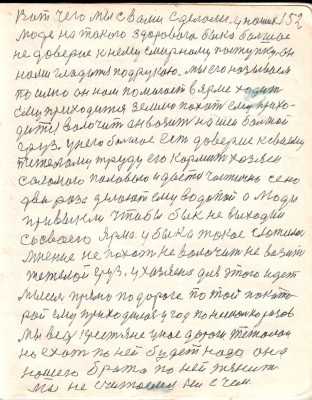 Вот чего мы с вами сделали. у наших 152
люде на такого здорового быка большое
не доверие к нему смирному поступку он
нами гладится под рукою. мы его называем
по имю он нам помогает в ярме ходит
ему приходится землю похат ему прихо-
дится волочит ан возит на шеи большой
груз. у него большое ест доверие к своему
тяжелому труду его кормит хозяен
соломою половаю и даёт частично сено
два раза делают ему водопой о люди
привыкли чтобы бык не выходил
со своего ярма. у быка такое
мнение не похат не волочит не возит
тежелой груз. у хозяена для этого идет
мысля прямо по дороге по той по като-
рой ему приходилос у год по несколко разов
мы вед крестяне у нас дороги
но ехат по ней будет надо она
нашего брата по ней тянит
мы не считаемся ни с чем.